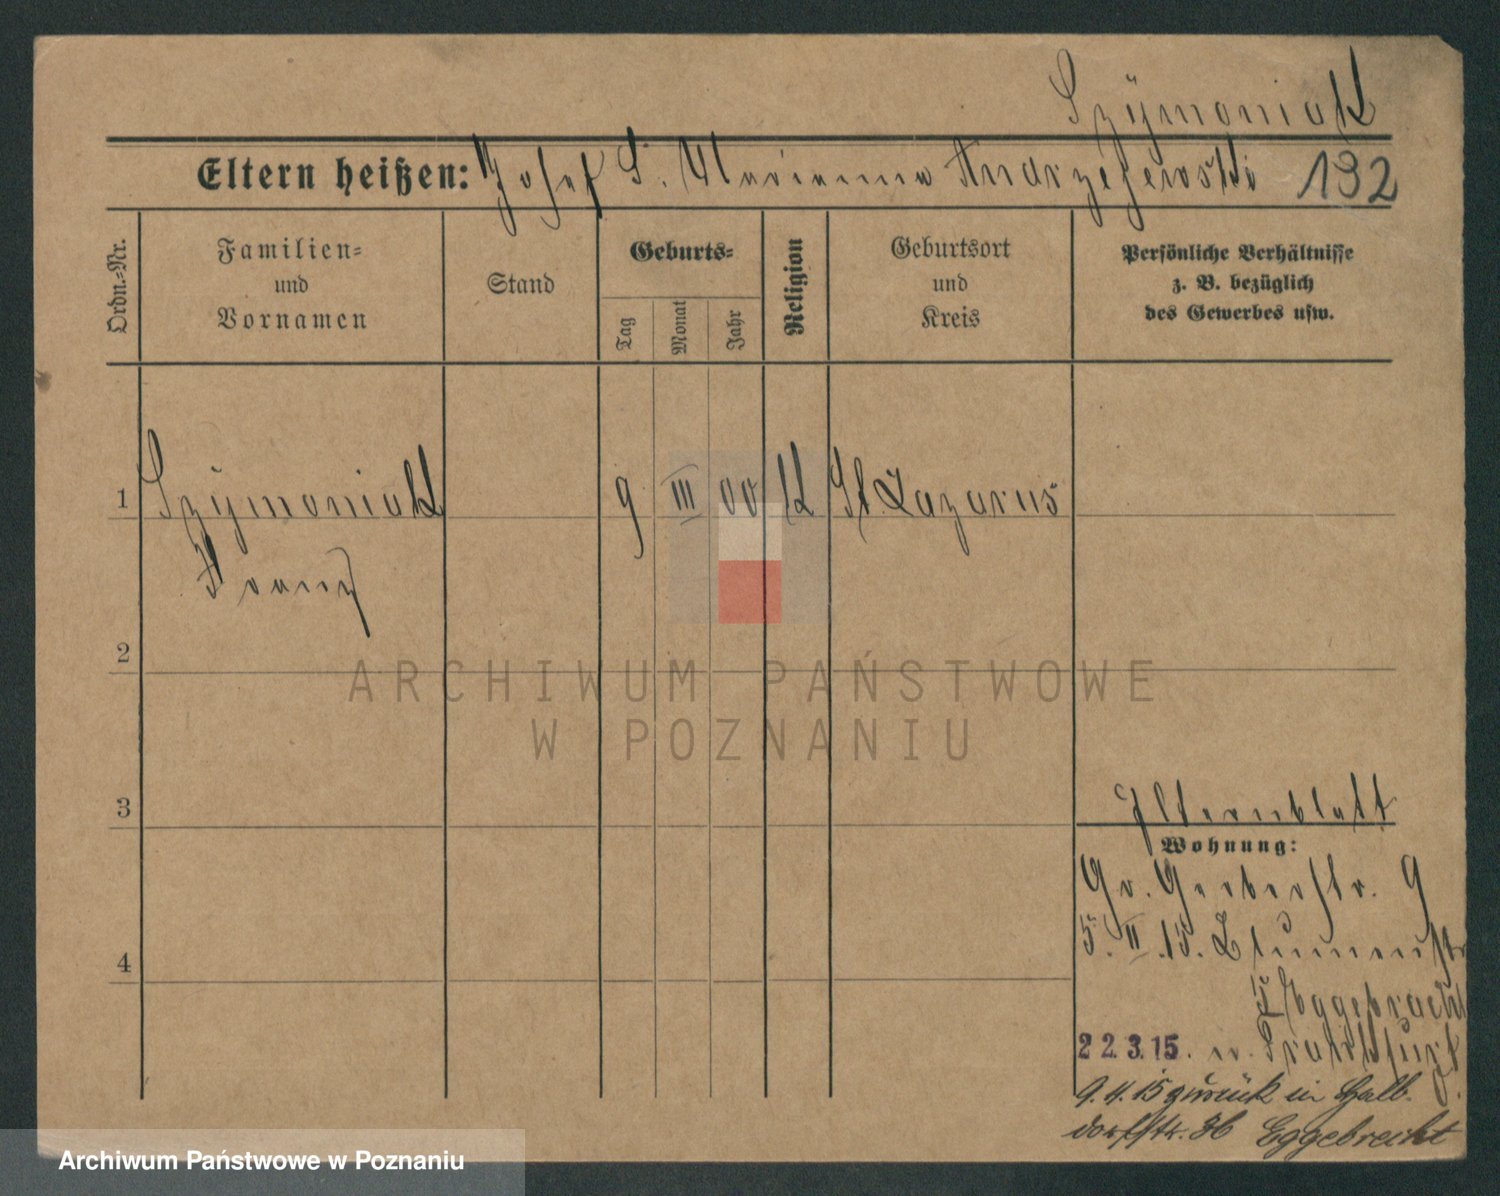 Szÿmoniak
Eltern heißen: Josef S. Marianna Andrzejewski 192
Ordn.-Nr.
Familien- und Vornamen
Stand
Geburts-
Tag
Monat
Jahr
Religion
Geburtsort und Kreis
Persönliche Verhältnisse
z. B. bezüglich
des Gewerbes usw.
1 Szÿmoniak 9 III 00 K St. Lazarus
Franz
2
3
Elternblatt
Wohnung:
Gr. Gerberstr. 9
5. II. 15. Blumenstr
4
bei Eggebrecht
22.3.15. n. Frankfurt
9.4.15 zurück in Halb-
dorfstr. 36 Eggebrecht
ARCHIWUM PAŃSTWOWE
W POZNANIU
Archiwum Państwowe w Poznaniu